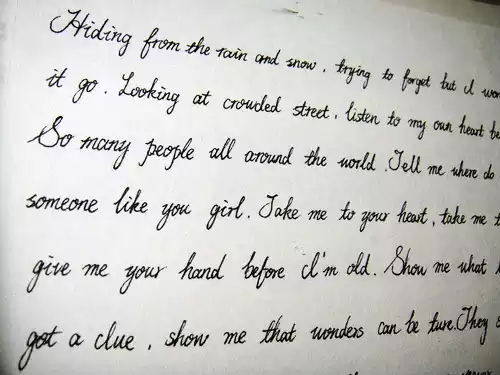 Hiding from the rain and snow, trying to forget but I won
it go. Looking at crowded street, listen to my own heart be
So many people all around the world. Tell me where do
someone like you girl. Take me to your heart, take me t
give me your hand before I'm old. Show me what l
got a clue, show me that wonders can be ture. They s